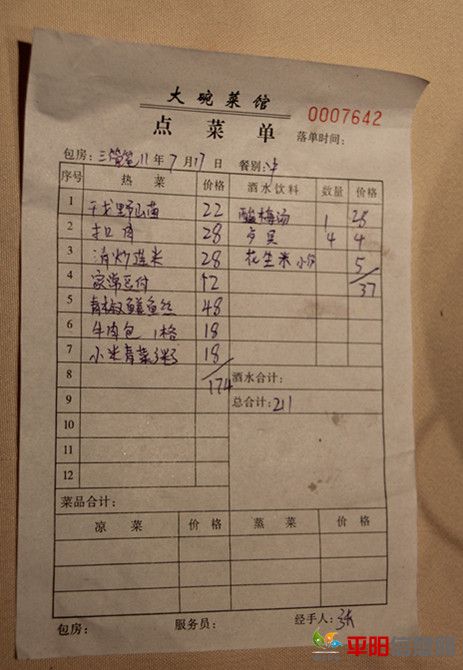 大碗菜馆
0007642
点菜单
落单时间：
包房：三 11年7月17日 餐别：中
序号 热菜 价格 酒水饮料 数量 价格
1 干 野山菌 22 酸梅汤 1 28
2 扣肉 28 4 4
3 清炒 米 28 花生米 小 5
4 家常豆付 12 37
5 青椒鳝鱼丝 48
6 牛肉包 1格 18
7 小米青菜粥 18
8 174 酒水合计：
9 总合计：211
10
11
12
菜品合计：
凉菜 价格 蒸菜 价格
包房： 服务员： 经手人：张
平阳信息网